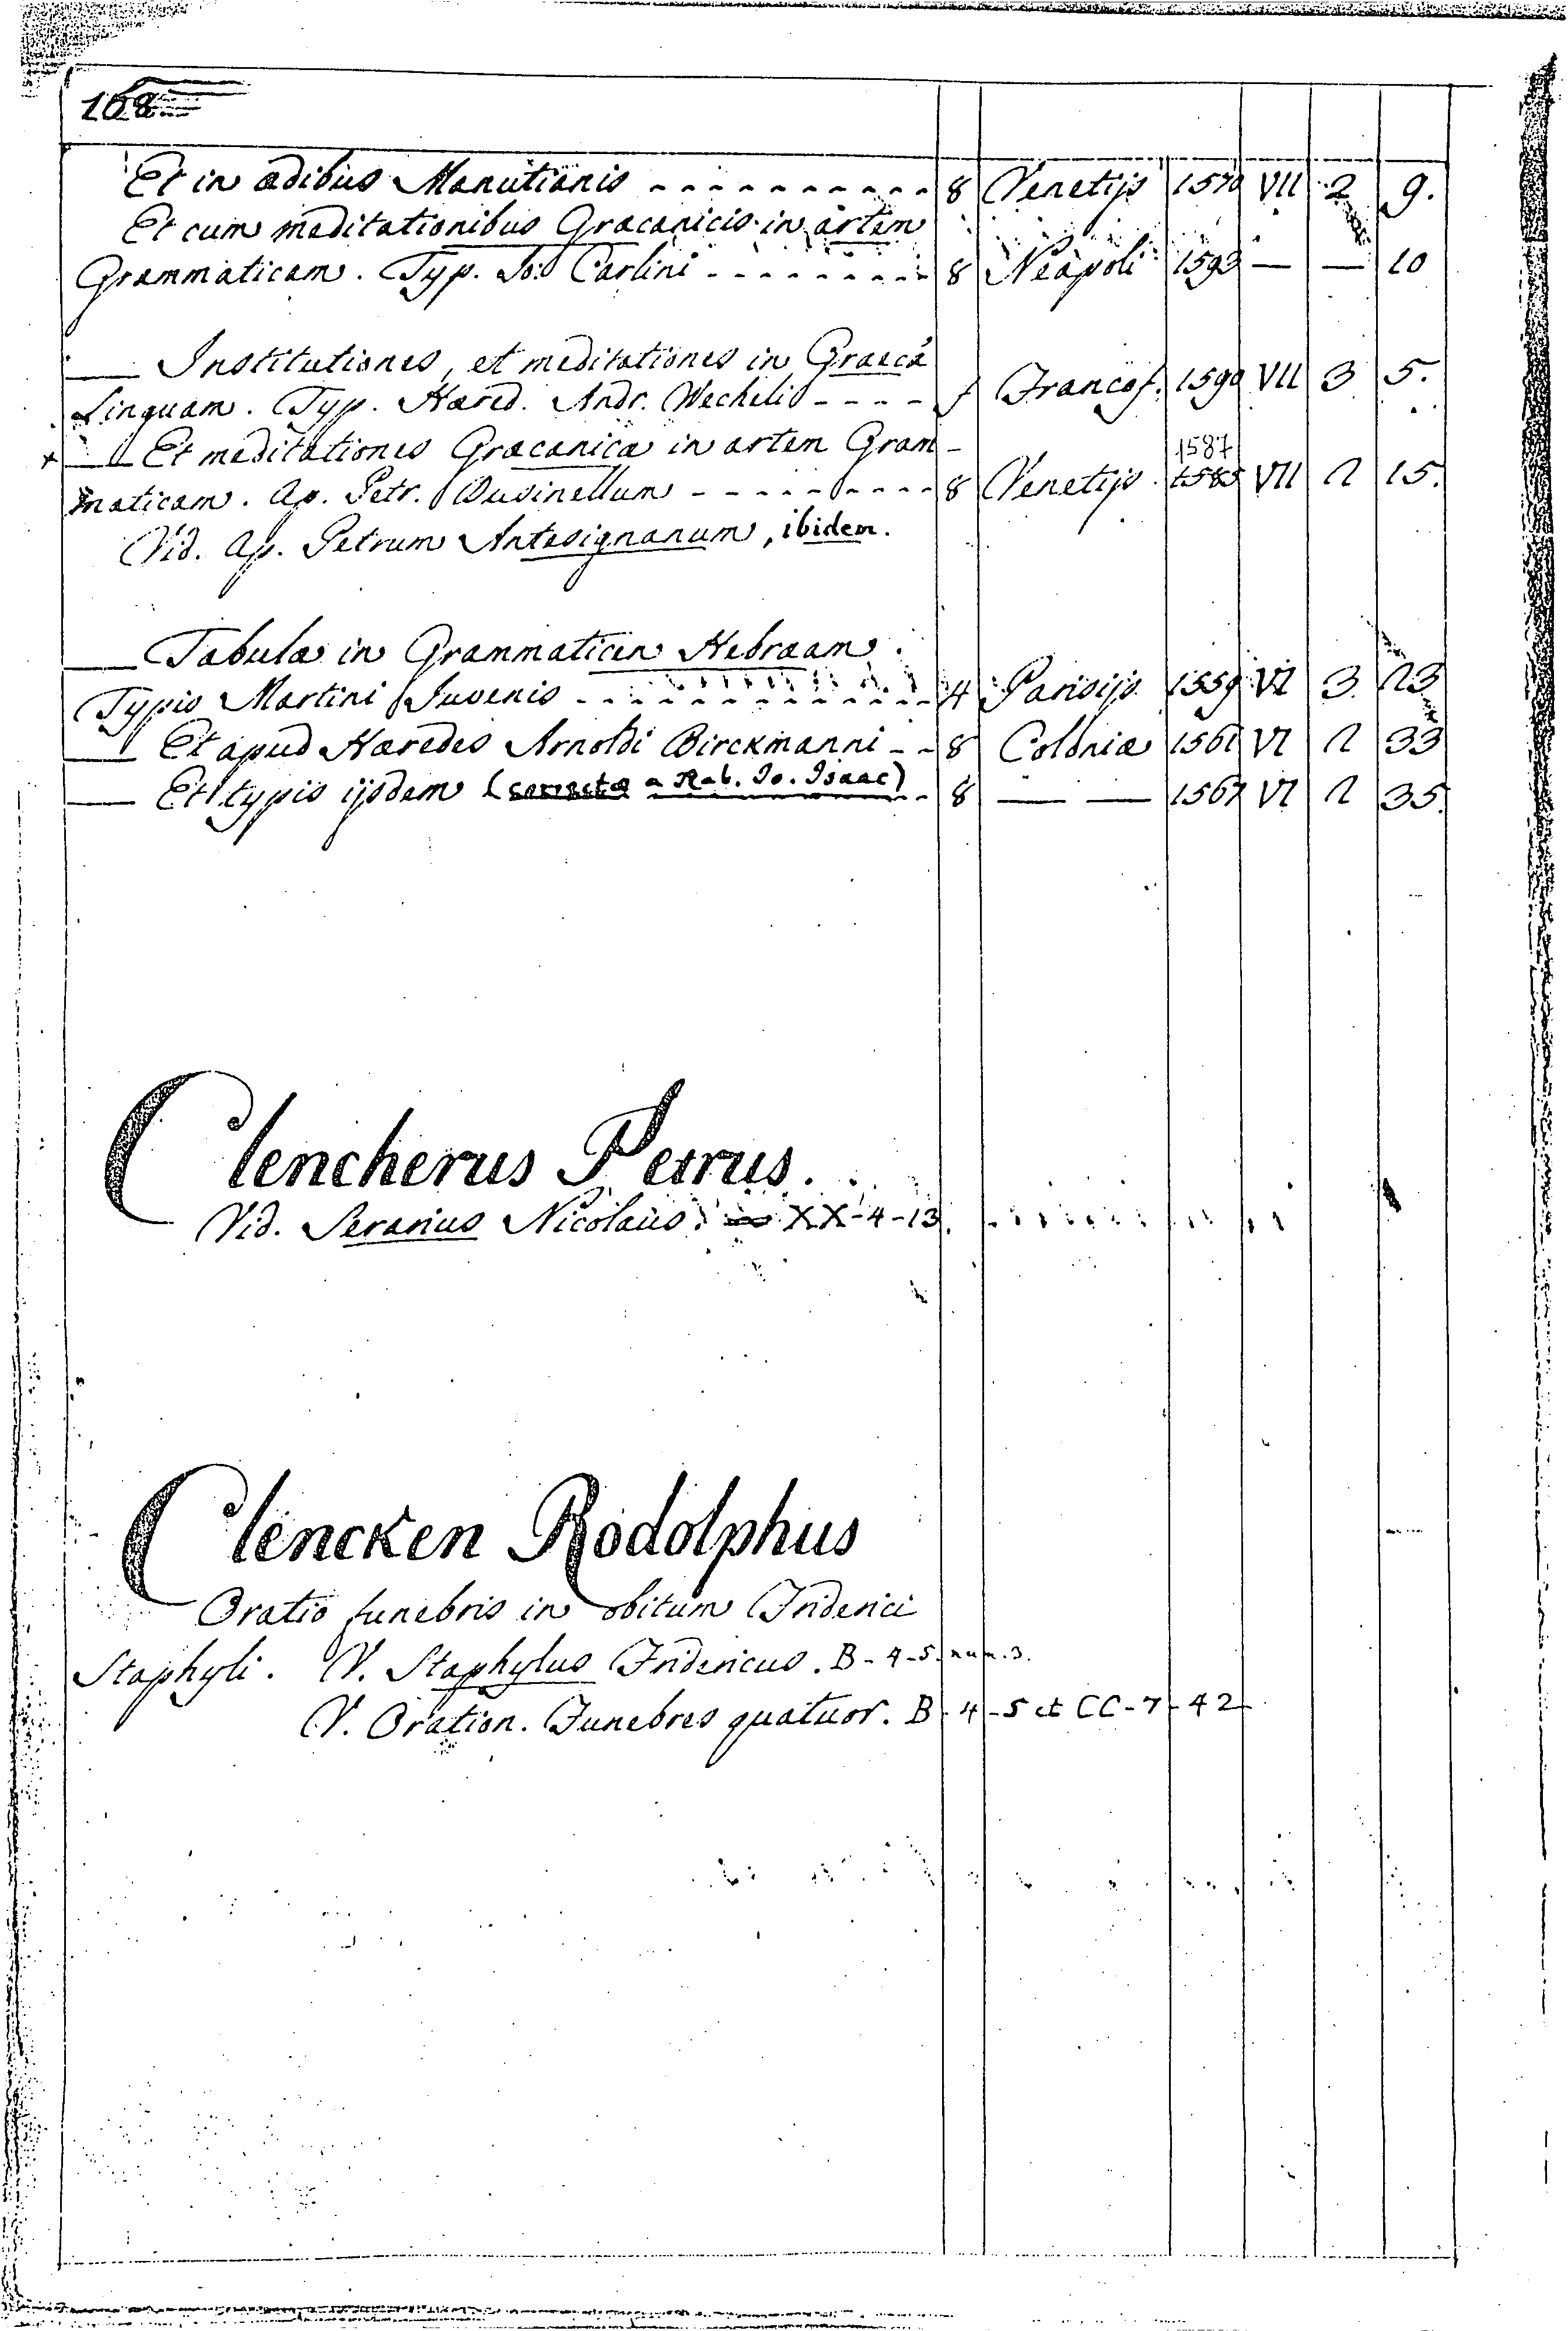 168
Et in ædibus Manutianis - - - - - - - - - - 8 Venetijs 1570 VII 2 9.
Et cum meditationibus Græcanicis in artem
Grammaticam. Typ. Jo: Carlini - - - - - - - - 8 Neapoli 1593 — — 10
— Institutiones, et meditationes in Græcã
Linguam. Typ. Hæred. Andr. Wecheli - - - - f Francof. 1590 VII 3 5.
x — Et meditationes Græcanicæ in artem Gram-
1587
maticam. Ap. Petr. Dusinellum - - - - - - - - 8 Venetijs. 1585 VII 2 15.
Vid. Ap. Petrum Antesignanum, ibidem.
— Tabulæ in Grammaticen Hebræam.
Typis Martini Juvenis - - - - - - - - - - - - 4 Parisijs 1559 VI 3 23
— Et apud Hæredes Arnoldi Birckmanni - - 8 Coloniæ 1561 VI 2 33
— Et typis ijsdem (correctæ a Rab. Jo. Isaac) - 8 — — 1567 VI 2 35.
Clencherus Petrus.
Vid. Serarius Nicolaus. XX-4-13.
Clencken Rodolphus
Oratio funebris in obitum Friderici
Staphyli. V. Staphylus Fridericus. B-4-5. num. 3.
V. Oration. Funebres quatuor. B-4-5 et CC-7-42